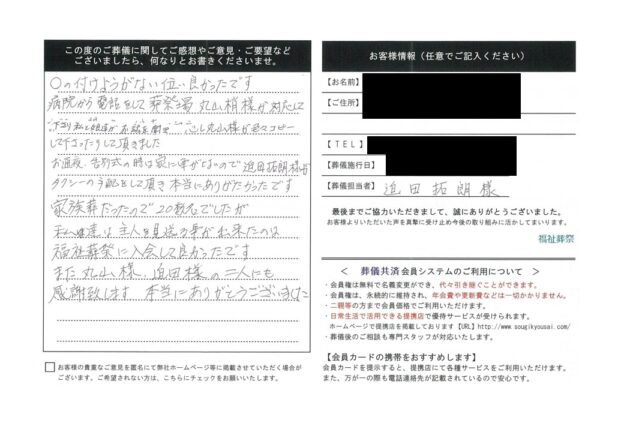 この度のご葬儀に関してご感想やご意見・ご要望など
ございましたら、何なりとお書きくださいませ。
〇の付けようがない位い良かったです
病院から電話をして葬祭場 丸山 様が対応して
下さり私と娘達が
して下さったりして頂きました
お通夜、告別式の時は家に車がないので 迫田拓朗様が
タクシーの手配をして頂き本当にありがたかったです
家族葬だったので20数名でしたが
主人を見送る事が出来たのは
福祉葬祭に入会して良かったです
また丸山様、迫田様の二人にも
感謝致します 本当にありがとうございました
お客様の貴重なご意見を匿名にて弊社ホームページ等に掲載させていただく場合が
ございます。ご希望されない方は、こちらにチェックをお願いいたします。
お客様情報（任意でご記入ください）
【お名前】
【ご住所】
【ＴＥＬ】
【葬儀施行日】
【葬儀担当者】 迫田 拓朗 様
最後までご協力いただきまして、誠にありがとうございました。
お客様よりいただいた声を真摯に受け止め今後の取り組みに活かしてまいります。
福祉葬祭
＜ 葬儀共済会員システムのご利用について ＞
・会員権は無料で名義変更ができ、代々引き継ぐことができます。
・会員権は、永続的に維持され、年会費や更新費などは一切かかりません。
・二親等の方まで会員価格でご利用いただけます。
・日常生活で活用できる提携店で優待サービスが受けられます。
ホームページで提携店を掲載しております【URL】http://www.sougikyousai.com/
・葬儀後のご相談も専門スタッフが対応いたします。
【会員カードの携帯をおすすめします】
会員カードを提示すると、提携店にて各種サービスをご利用いただけます。
また、万が一の際も電話連絡先が記載されているので安心です。